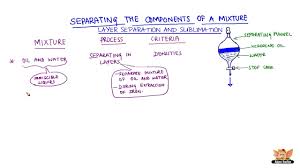 SEPARATING THE COMPONENTS OF A MIXTURE
LAYER SEPARATION AND SUBLIMATION
MIXTURE
PROCESS
CRITERIA
OIL AND WATER
IMMISCIBLE
LIQUIDS
SEPARATING IN
LAYERS
DENSITIES
- SEPARATE MIXTURE
OF OIL AND WATER
- DURING EXTRACTION
OF IRON.
SEPARATING FUNNEL
KEROSENE OIL
WATER
STOP COCK